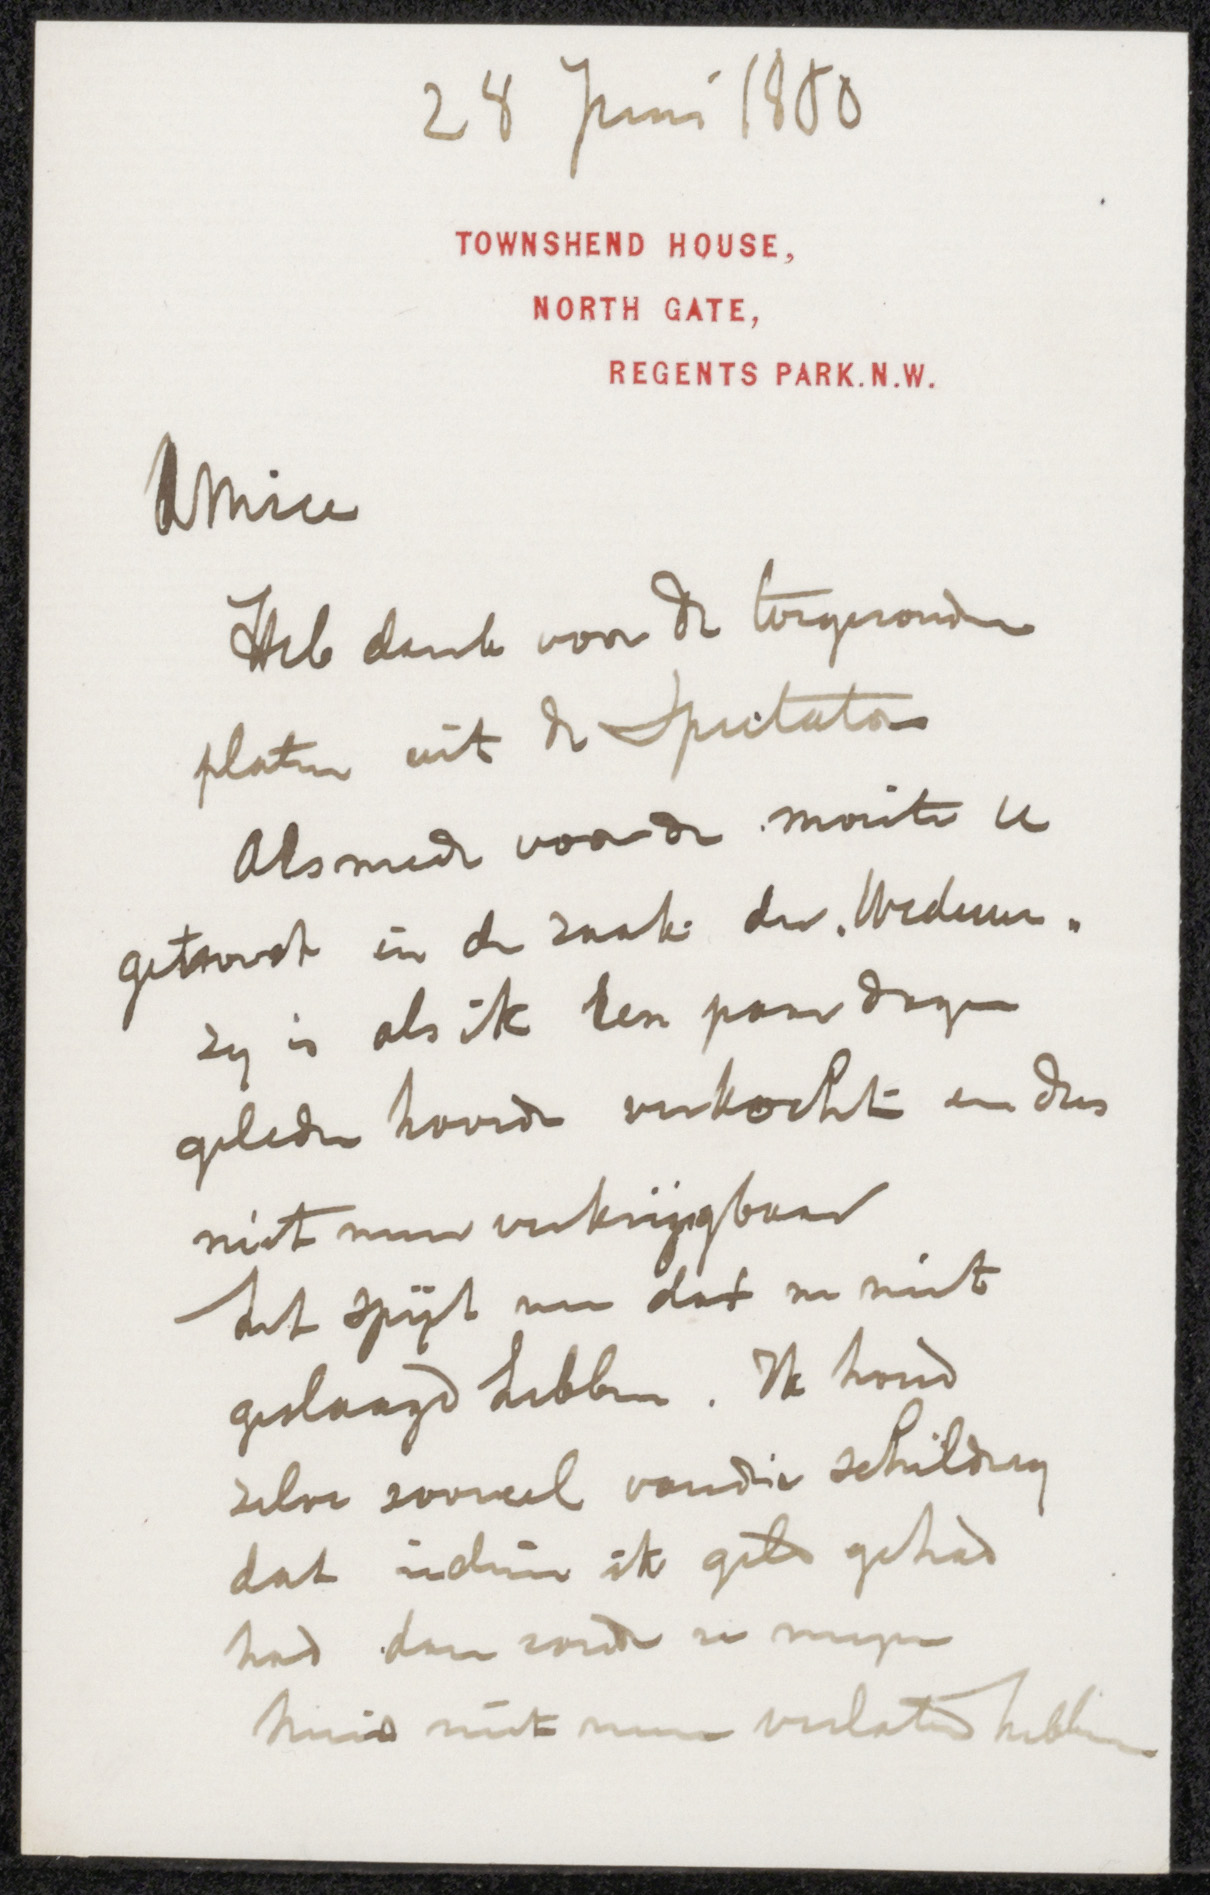 28 Juni 1880
TOWNSHEND HOUSE,
NORTH GATE,
REGENTS PARK.N.W.
Amice
Heb dank voor de toegezonden
platen uit de Spectator
Alsmede voor de moeite u
getroost in de zaak der „Weduwe„
zy is als ik een paar dagen
geleden hoorde verkocht en dus
niet meer verkrijgbaar
het spijt me dat we niet
geslaagd hebben. Ik houd
zelve zooveel van die schildery
dat indien ik geld gehad
had dan zoude ze myn
huis niet meer verlaten hebben